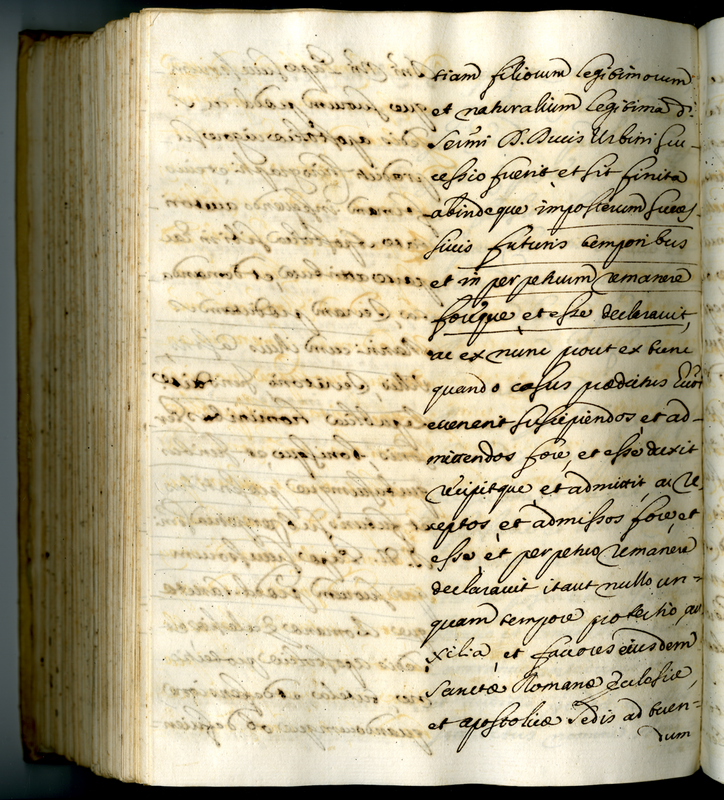 tiam filiorum legitimorum
et naturalium legitima d.
Sermi D. Ducis Urbini suc-
cessio fuerit et sit finita
abindeque imposterum suces-
sivis futuris temporibus
et in perpetuum remanere
foreque et esse declaravit,
ac ex nunc prout ex tunc
quando casus prædictus
evenerit suscipiendos et ad-
mittendos fore, et esse duxit
recipitque et admittit ac re-
ceptos et admissos fore et
esse et perpetuo remanere
declaravit itaut nullo un-
quam tempore protectio, au
xilia et favores eiusdem
Sanctæ Romanæ Ecclesiæ,
et apostolicæ sedis ad tuen-
dum